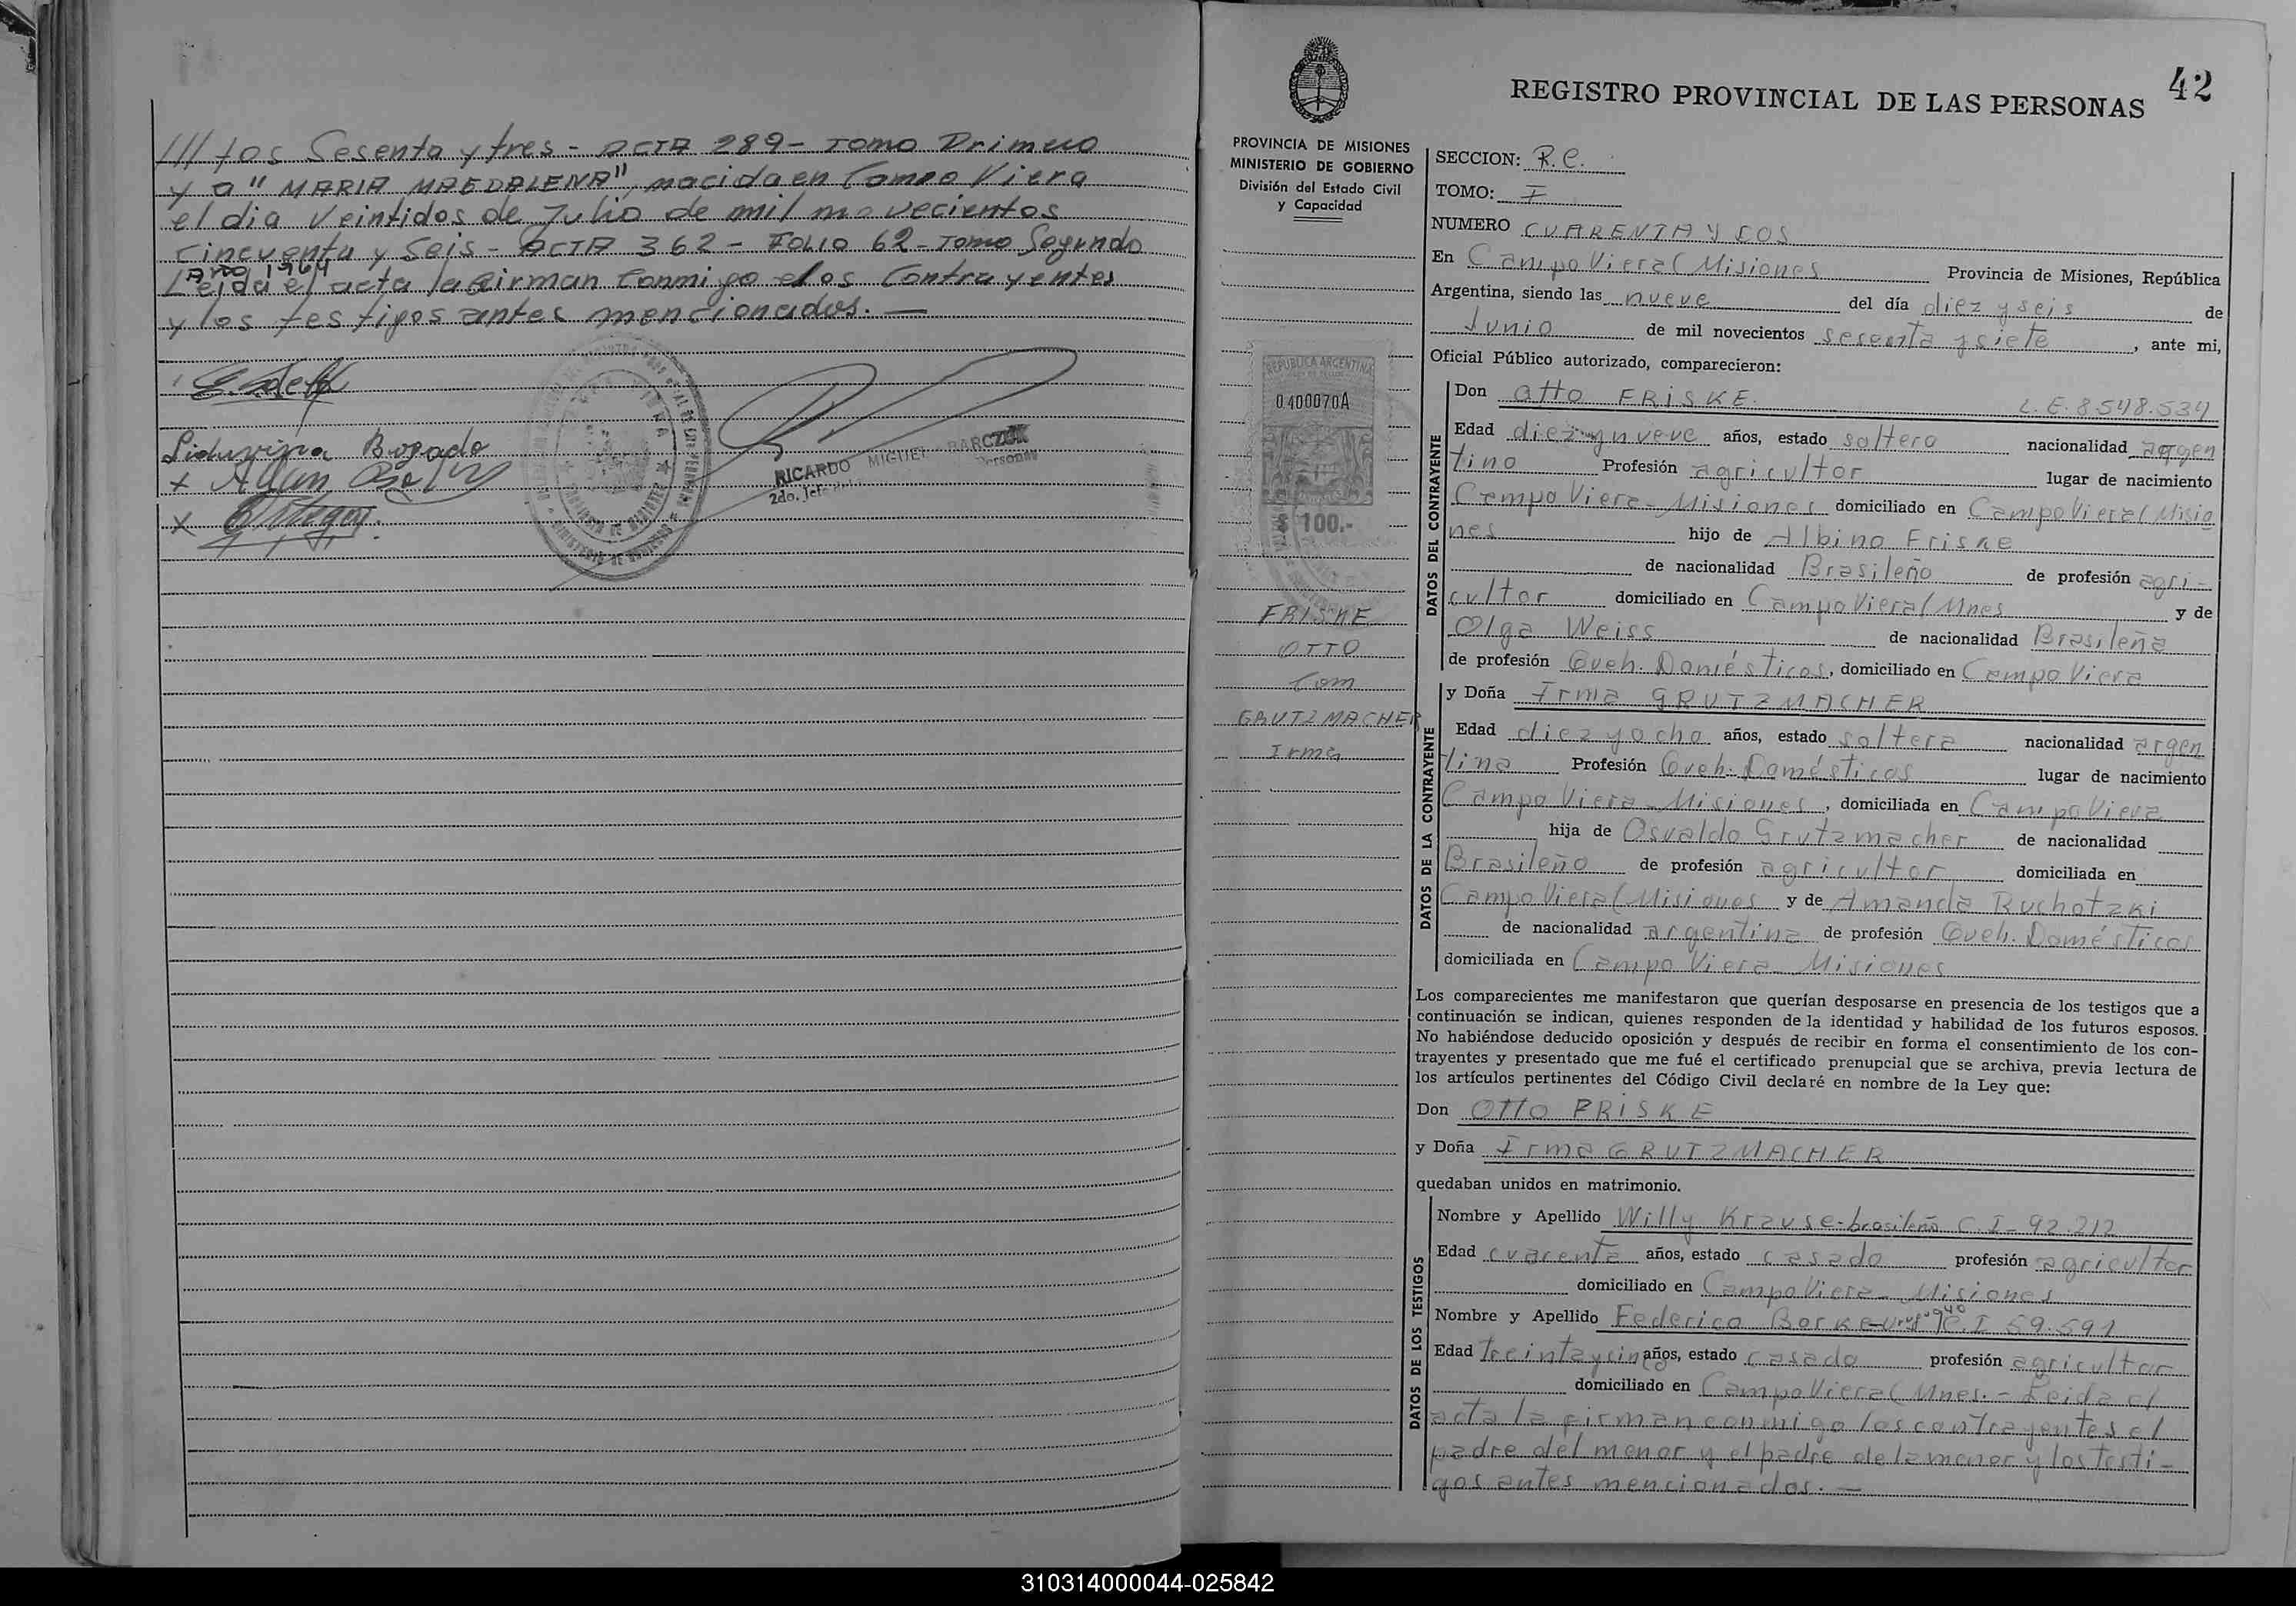 /// tos Sesenta y tres - ACTA 289 - Tomo Primero
y a "MARIA MAGDALENA", nacida en Campo Viera
el dia Veintidos de Julio de mil novecientos
cincuenta y Seis - ACTA 362 - Folio 62 - Tomo Segundo
Año 1964
Leida el acta la firman conmigo los Contrayentes
y los testigos antes mencionados. —
Bogado
RICARDO MIGUEL BARCZUK
2do. Jefe
42
REGISTRO PROVINCIAL DE LAS PERSONAS
PROVINCIA DE MISIONES
MINISTERIO DE GOBIERNO
División del Estado Civil
y Capacidad
REPUBLICA ARGENTINA
0.400070A
$ 100.-
FRISKE
OTTO
Con
GRUTZMACHER
Irma
SECCION: R.C.
TOMO: I
NUMERO CUARENTA Y DOS
En Campo Viera (Misiones Provincia de Misiones, República
Argentina, siendo las nueve del día diez y seis de
Junio de mil novecientos sesenta y siete, ante mi,
Oficial Público autorizado, comparecieron:
DATOS DEL CONTRAYENTE
Don Otto FRISKE. L.E. 8.548.534
Edad diez y nueve años, estado soltero nacionalidad argen
tino Profesión agricultor lugar de nacimiento
Campo Viera - Misiones domiciliado en Campo Viera (Misio
nes hijo de Albino Friske
de nacionalidad Brasileño de profesión agri-
cultor domiciliado en Campo Viera (Mnes y de
Olga Weiss de nacionalidad Brasileña
de profesión Queh. Domésticos, domiciliado en Campo Viera
DATOS DE LA CONTRAYENTE
y Doña Irma GRUTZMACHER
Edad diez y ocho años, estado soltera nacionalidad argen
tina Profesión Queh. Domésticos lugar de nacimiento
Campo Viera - Misiones, domiciliada en Campo Viera
hija de Osvaldo Grutzmacher de nacionalidad
Brasileño de profesión agricultor domiciliada en
Campo Viera (Misiones y de Amanda Ruchotzki
de nacionalidad argentina de profesión Queh. Domésticos
domiciliada en Campo Viera - Misiones
Los comparecientes me manifestaron que querían desposarse en presencia de los testigos que a
continuación se indican, quienes responden de la identidad y habilidad de los futuros esposos.
No habiéndose deducido oposición y después de recibir en forma el consentimiento de los con-
trayentes y presentado que me fué el certificado prenupcial que se archiva, previa lectura de
los artículos pertinentes del Código Civil declaré en nombre de la Ley que:
Don Otto FRISKE
y Doña Irma GRUTZMACHER
quedaban unidos en matrimonio.
DATOS DE LOS TESTIGOS
Nombre y Apellido Willy Krause - brasileño C.I - 92.212
Edad cuarenta años, estado casado profesión agricultor
domiciliado en Campo Viera - Misiones
Nombre y Apellido Federico Borke C.I 59.591
Edad treinta y cinco años, estado casado profesión agricultor
domiciliado en Campo Viera (Mnes. - Leida el
acta la firman conmigo los contrayentes el
padre del menor y el padre de la menor y los testi-
gos antes mencionados. —
310314000044-025842